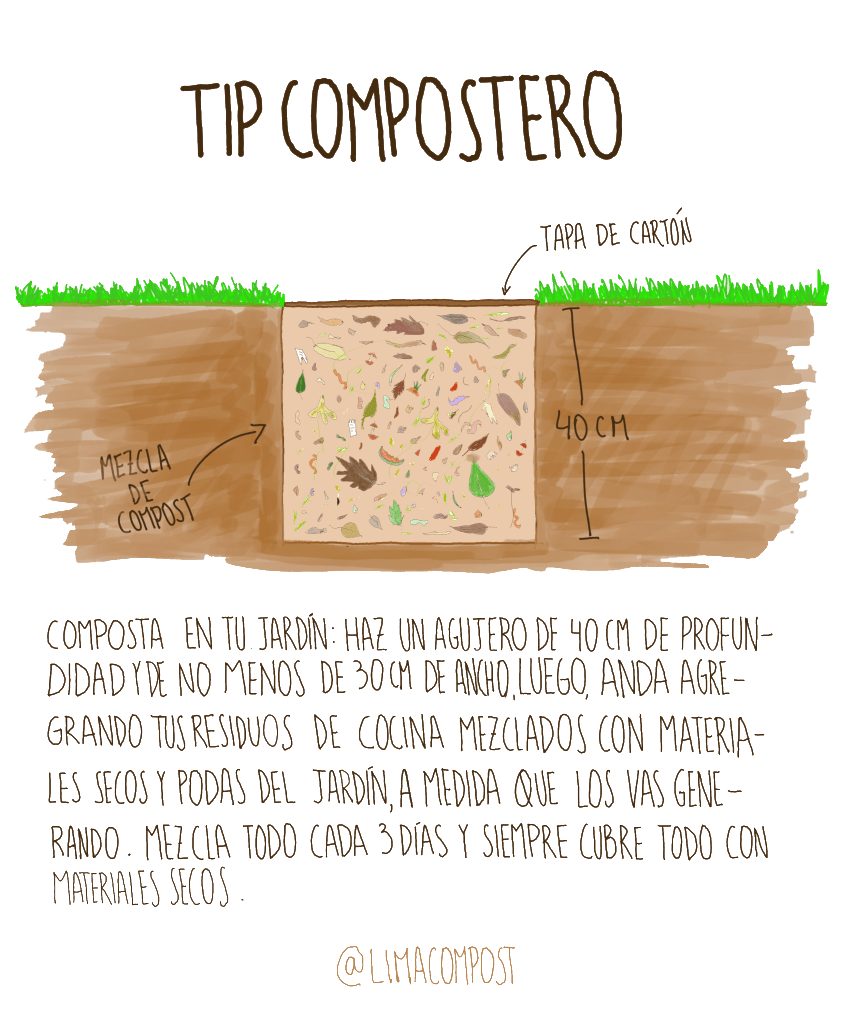 TIP COMPOSTERO
TAPA DE CARTÓN
40 CM
MEZCLA
DE
COMPOST
COMPOSTA EN TU JARDÍN: HAZ UN AGUJERO DE 40 CM DE PROFUN-
DIDAD Y DE NO MENOS DE 30 CM DE ANCHO, LUEGO, ANDA AGRE-
GRANDO TUS RESIDUOS DE COCINA MEZCLADOS CON MATERIA-
LES SECOS Y PODAS DEL JARDÍN, A MEDIDA QUE LOS VAS GENE-
RANDO. MEZCLA TODO CADA 3 DÍAS Y SIEMPRE CUBRE TODO CON
MATERIALES SECOS.
@LIMACOMPOST